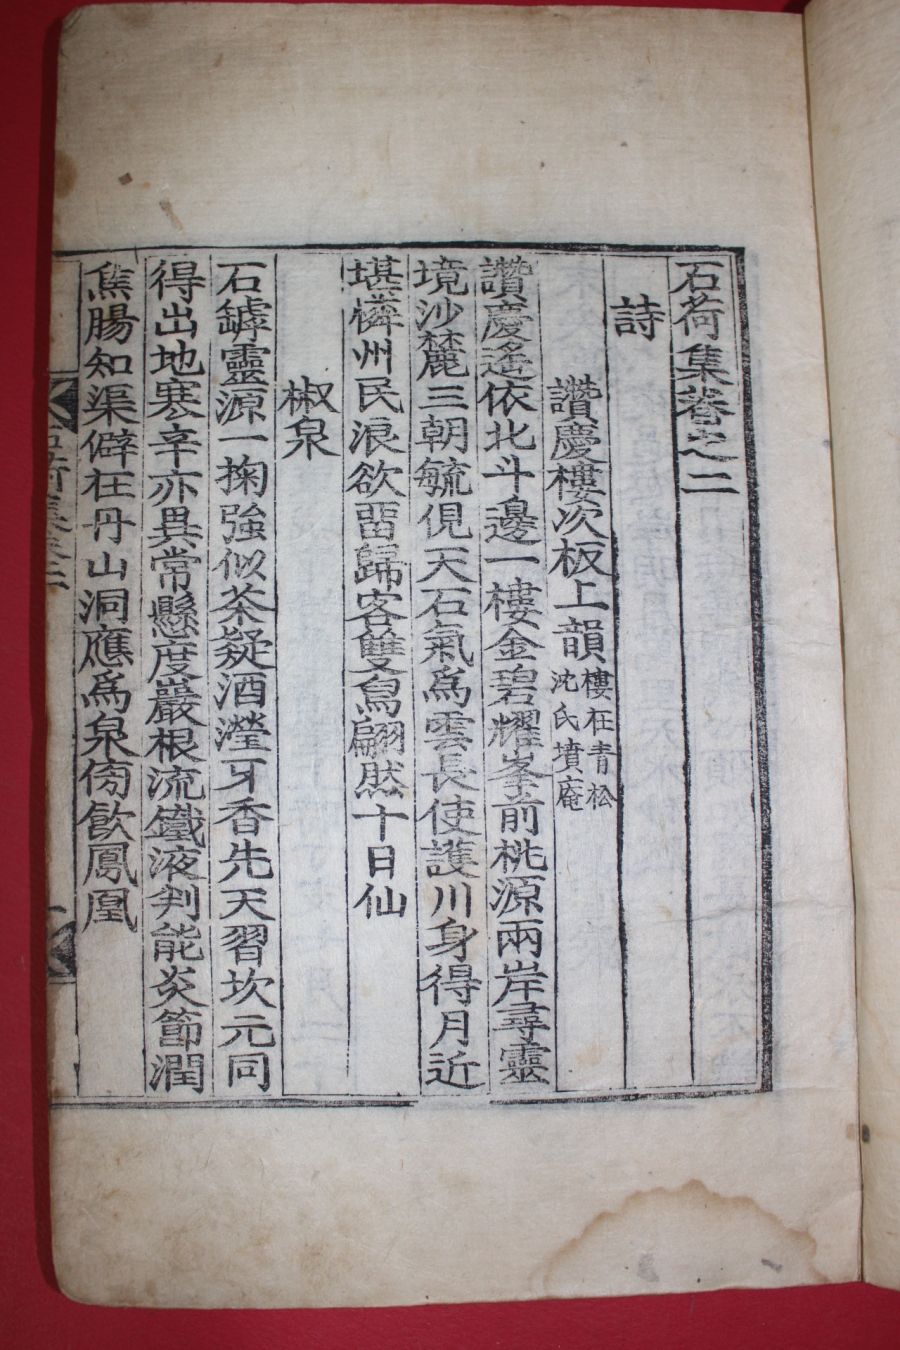 石荷集卷之二
詩
讚慶樓次板上韻 樓在青松沈氏墳庵
讚慶遙依北斗邊一樓金碧耀峯前桃源兩岸尋靈
境沙麓三朝毓俔天石氣爲雲長使護川身得月近
堪憐州民浪欲畱歸客雙舃翩然十日仙
椒泉
石罅靈源一掬強似茶疑酒瀅牙香先天習坎元同
得出地寒辛亦異常懸度巖根流鐵液判能炎節潤
焦腸知渠僻在丹山洞應爲泉傍飮鳳凰